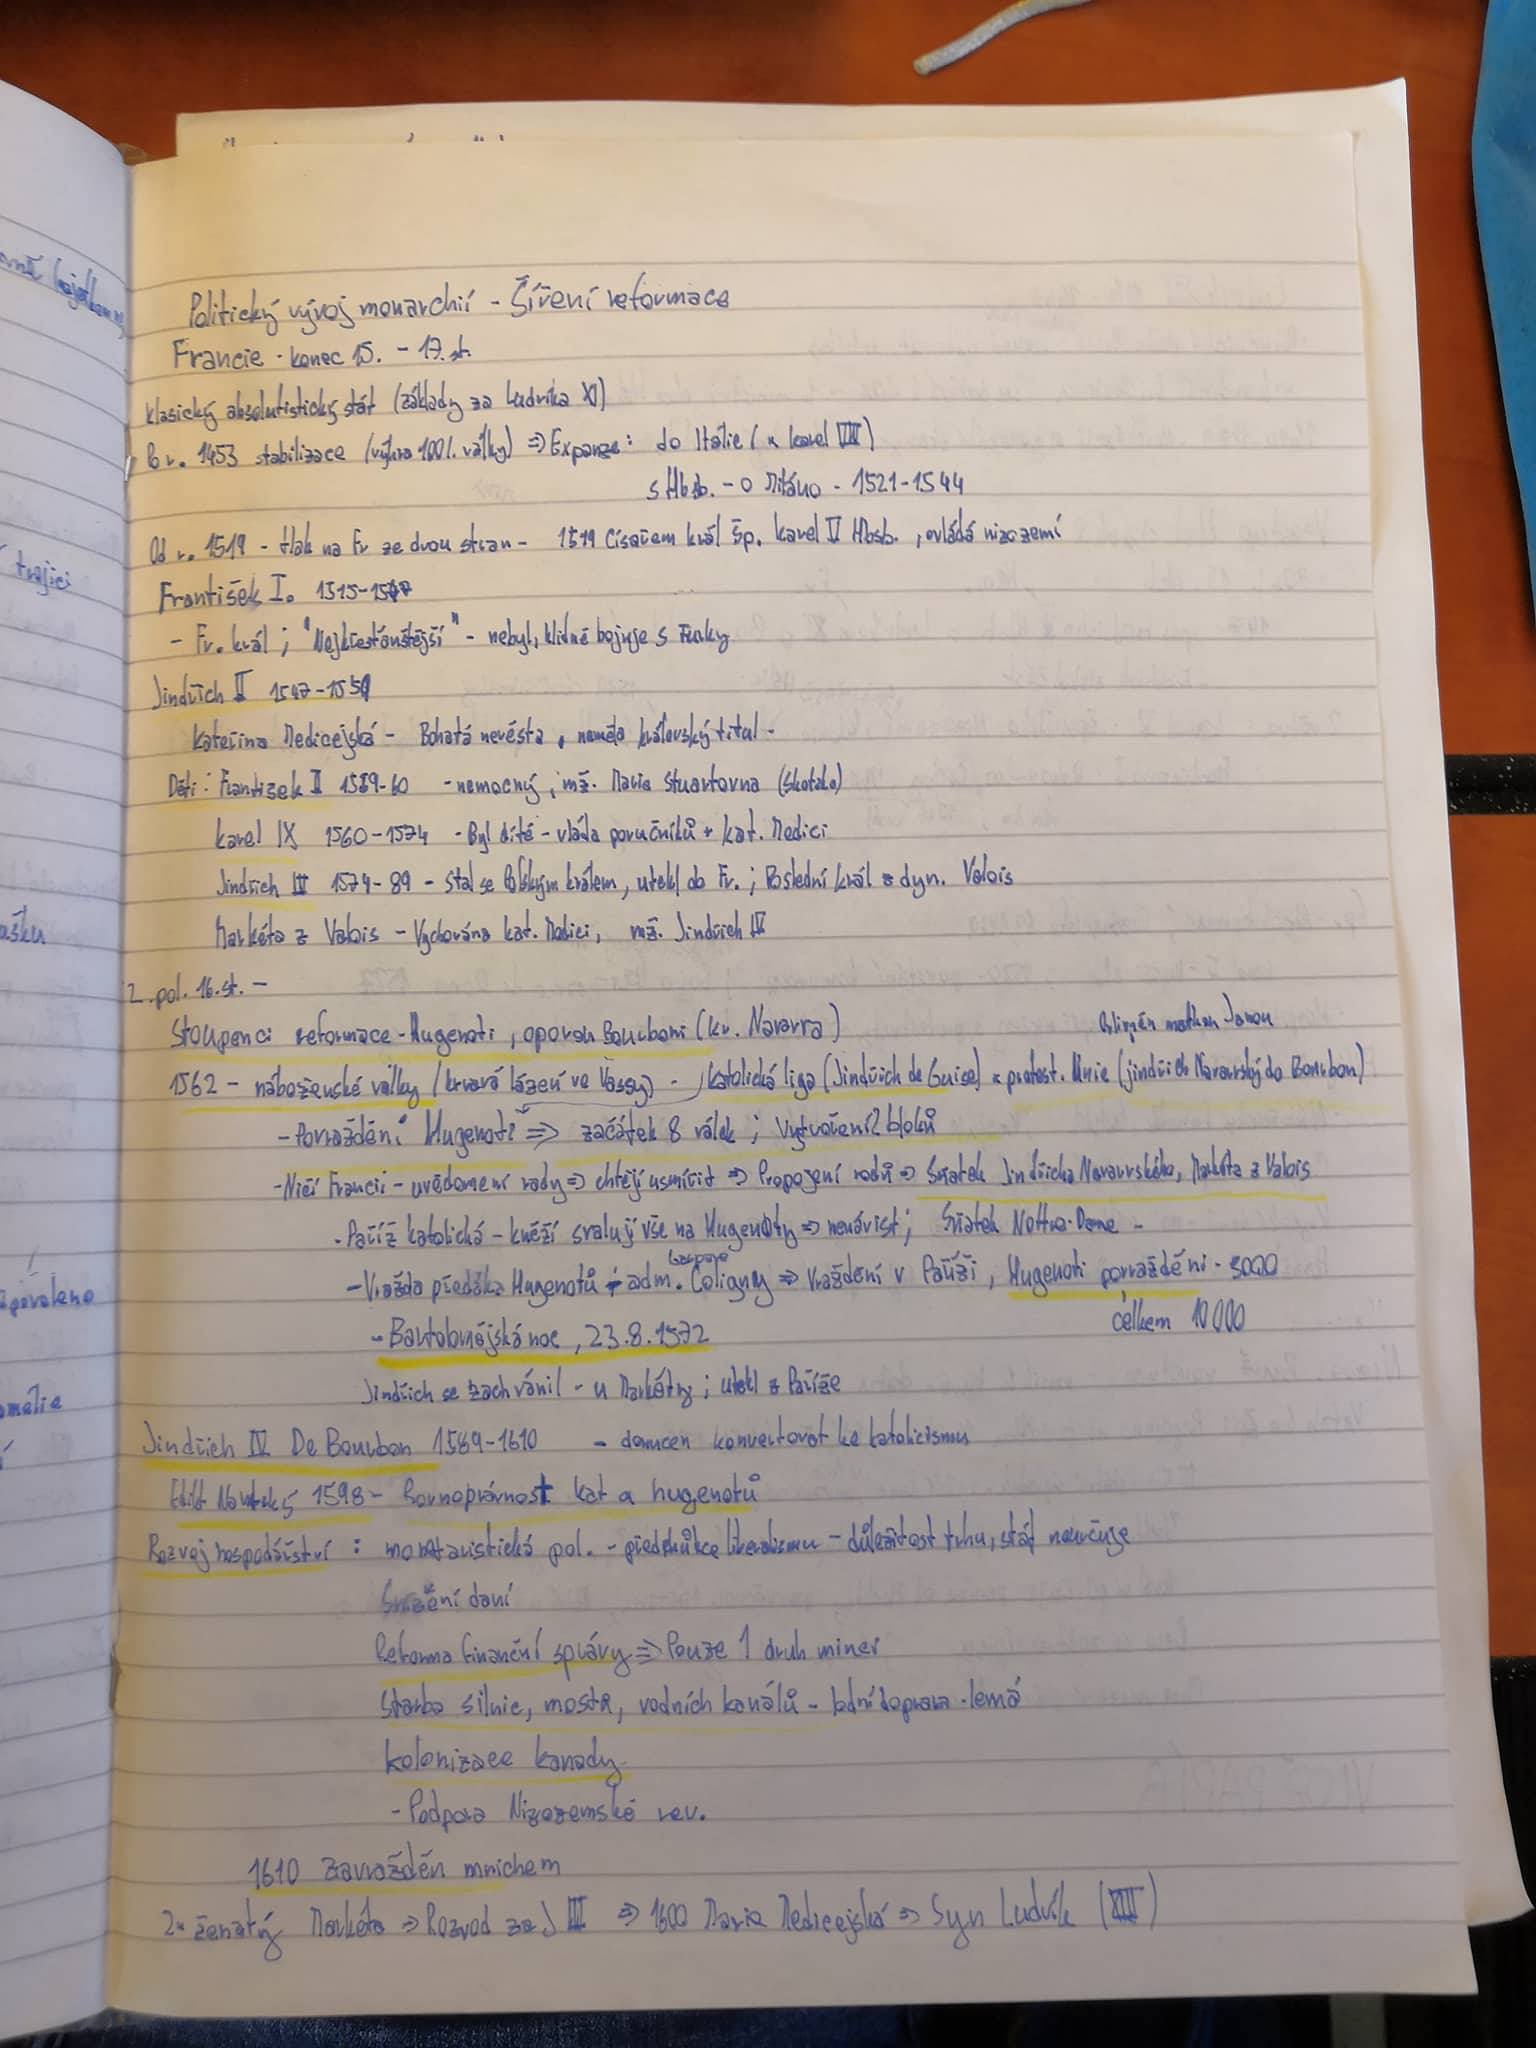 Politický vývoj monarchií - Šíření reformace
Francie - konec 15. - 17. st.
klasický absolutistický stát (základy za Ludvíka XI)
Po r. 1453 stabilizace (výhra 100l. války) => Expanze: do Itálie (x karel VIII)
s Hbsb. - o Miláno - 1521-1544
Od r. 1519 - tlak na Fr ze dvou stran - 1519 Císařem král Šp. karel V Hbsb., ovládá nizozemí
František I. 1515-1547
- Fr. král ; "Nejkřesťanštější" - nebyl, klidně bojuje s Turky
Jindřich II 1547-1559
kateřina Medicejská - Bohatá nevěsta, neměla královský titul -
Děti: František II 1559-60 - nemocný, mž. Marie Stuartovna (skotsko)
karel IX 1560-1574 - Byl dítě - vláda poručníků + kat. Medici
Jindřich III 1574-89 - stal se Polským králem, utekl do Fr. ; Poslední král z dyn. Valois
Markéta z Valois - Vychována kat. Medici, mž. Jindřich IV
2. pol. 16. st. -
Stoupenci reformace - Hugenoti, oporou Bourboni (kr. Navarra)
1562 - náboženské války (krvavá lázeň ve Vassy) - katolická liga (Jindřich de Guise) x protest. Unie (jindřich Navarrský do Bourbon)
- Povraždění Hugenoti => začátek 8 válek ; Vytvoření 2 bloků
- Ničí Francii - uvědomení rady => chtějí usmířit => Propojení rodů => Sňatek Jindřicha Navarrského, Markéta z Valois
- Paříž katolická - kněží svalují vše na Hugenoty => nenávist ; Sňatek Nottre-Dame -
- Vražda předáka Hugenotů adm. Gaspare Coligny => Vraždění v Paříži, Hugenoti povražděni - 3000
celkem 10 000
- Bartolomějská noc, 23.8.1572
Jindřich se zachránil - u Markéty ; utekl z Paříže
Jindřich IV De Bourbon 1589-1610 - donucen konvertovat ke katolicismu
Edikt Nantský 1598 - Rovnoprávnost kat a hugenotů
Rozvoj hospodářství : monetaristická pol. - předchůdce liberalismu - důležitost trhu, stát neurčuje
Snížení daní
Reforma finanční správy => Pouze 1 druh mincí
Stavba silnic, mostů, vodních kanálů - lodní doprava - lemá
kolonizace kanady
- Podpora Nizozemské rev.
1610 zavražděn mnichem
2x ženatý Markéta => Rozvod za J III => 1600 Marie Medicejská => Syn Ludvík (XIII)